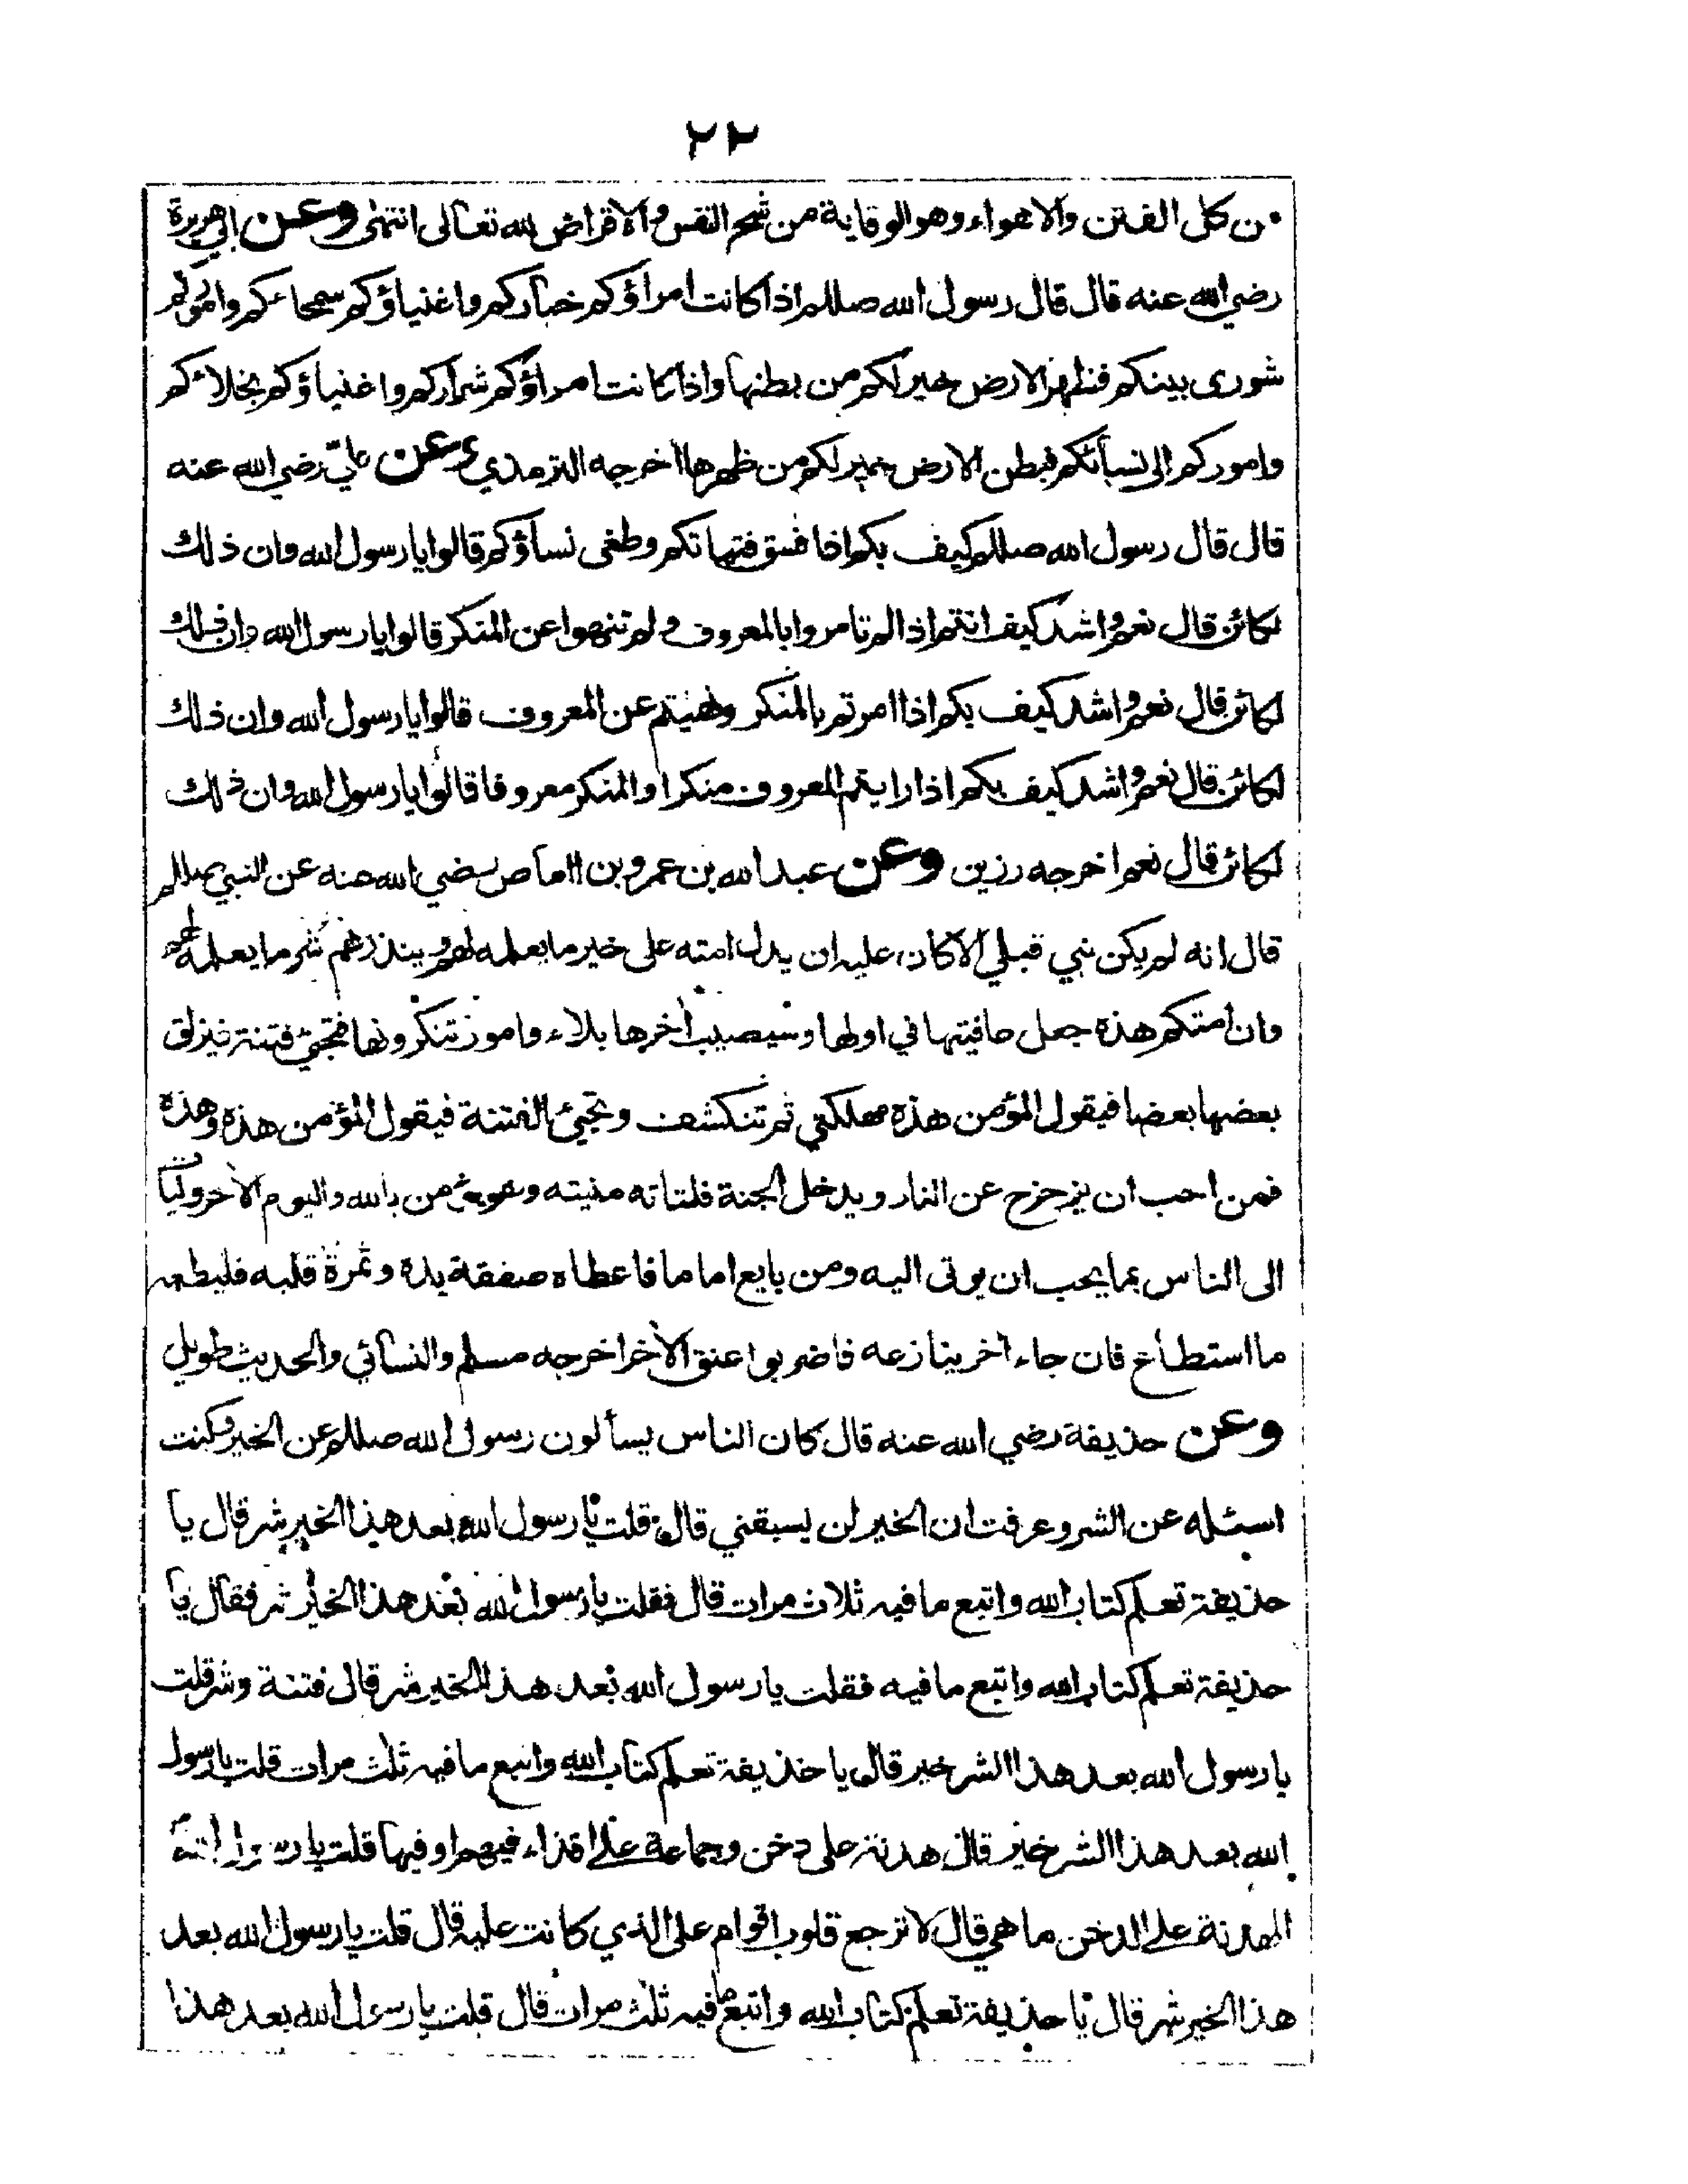 ٢٢
من كل الفتن والاهواء وهو الوقاية من شح النفس والاقراض لله تعالى انتهى وعن ابي هريرة
رضي الله عنه قال قال رسول الله صللم اذا كانت امراؤكم خياركم واغنياؤكم سمحاءكم واموركم
شورى بينكم فظهر الارض خير لكم من بطنها واذا كانت امراؤكم شراركم واغنياؤكم بخلاءكم
واموركم الى نسائكم فبطن الارض خير لكم من ظهرها اخرجه الترمذي وعن علي رضي الله عنه
قال قال رسول الله صللم كيف بكم اذا فسق فتياتكم وطغى نساؤكم قالوا يا رسول الله وان ذلك
لكائن قال نعم واشد كيف انتم اذا لم تامروا بالمعروف ولم تنهوا عن المنكر قالوا يا رسول الله وان ذلك
لكائن قال نعم واشد كيف بكم اذا امرتم بالمنكر ونهيتم عن المعروف قالوا يا رسول الله وان ذلك
لكائن قال نعم واشد كيف بكم اذا رايتم المعروف منكرا والمنكر معروفا قالوا يا رسول الله وان ذلك
لكائن قال نعم اخرجه رزين وعن عبد الله بن عمرو بن العاص رضي الله عنه عن النبي صللم
قال انه لم يكن نبي قبلي الا كان عليه ان يدل امته على خير ما يعلمه لهم وينذرهم شر ما يعلمه لهم
وان امتكم هذه جعل عافيتها في اولها وسيصيب اخرها بلاء وامور تنكرونها فتجئ فتنة فيزلق
بعضها بعضا فيقول المؤمن هذه مهلكتي ثم تنكشف وتجئ الفتنة فيقول المؤمن هذه وهذه
فمن احب ان يزحزح عن النار ويدخل الجنة فلتاته منيته وهو يؤمن بالله واليوم الاخر وليات
الى الناس بما يحب ان يوتى اليه ومن بايع اماما فاعطاه صفقة يده وثمرة قلبه فليطعه
ما استطاع فان جاء اخر ينازعه فاضربوا عنق الاخر اخرجه مسلم والنسائي والحديث طويل
وعن حذيفة رضي الله عنه قال كان الناس يسألون رسول الله صللم عن الخير وكنت
اسئله عن الشر وعرفت ان الخير لن يسبقني قال قلت يا رسول الله بعد هذا الخير شر قال يا
حذيفة تعلم كتاب الله واتبع ما فيه ثلاث مرات قال فقلت يا رسول الله بعد هذا الخير شر فقال يا
حذيفة تعلم كتاب الله واتبع ما فيه فقلت يا رسول الله بعد هذا الخير شر قال فتنة وشر قلت
يا رسول الله بعد هذا الشر خير قال يا حذيفة تعلم كتاب الله واتبع ما فيه ثلث مرات قلت يا رسول
الله بعد هذا الشر خير قال هدنة على دخن وجماعة على اقذاء فيهم او فيها قلت يا رسول الله
الهدنة على الدخن ما هي قال لا ترجع قلوب اقوام على الذي كانت عليه قال قلت يا رسول الله بعد
هذا الخير شر قال يا حذيفة تعلم كتاب الله واتبع ما فيه ثلث مرات قال قلت يا رسول الله بعد هذا